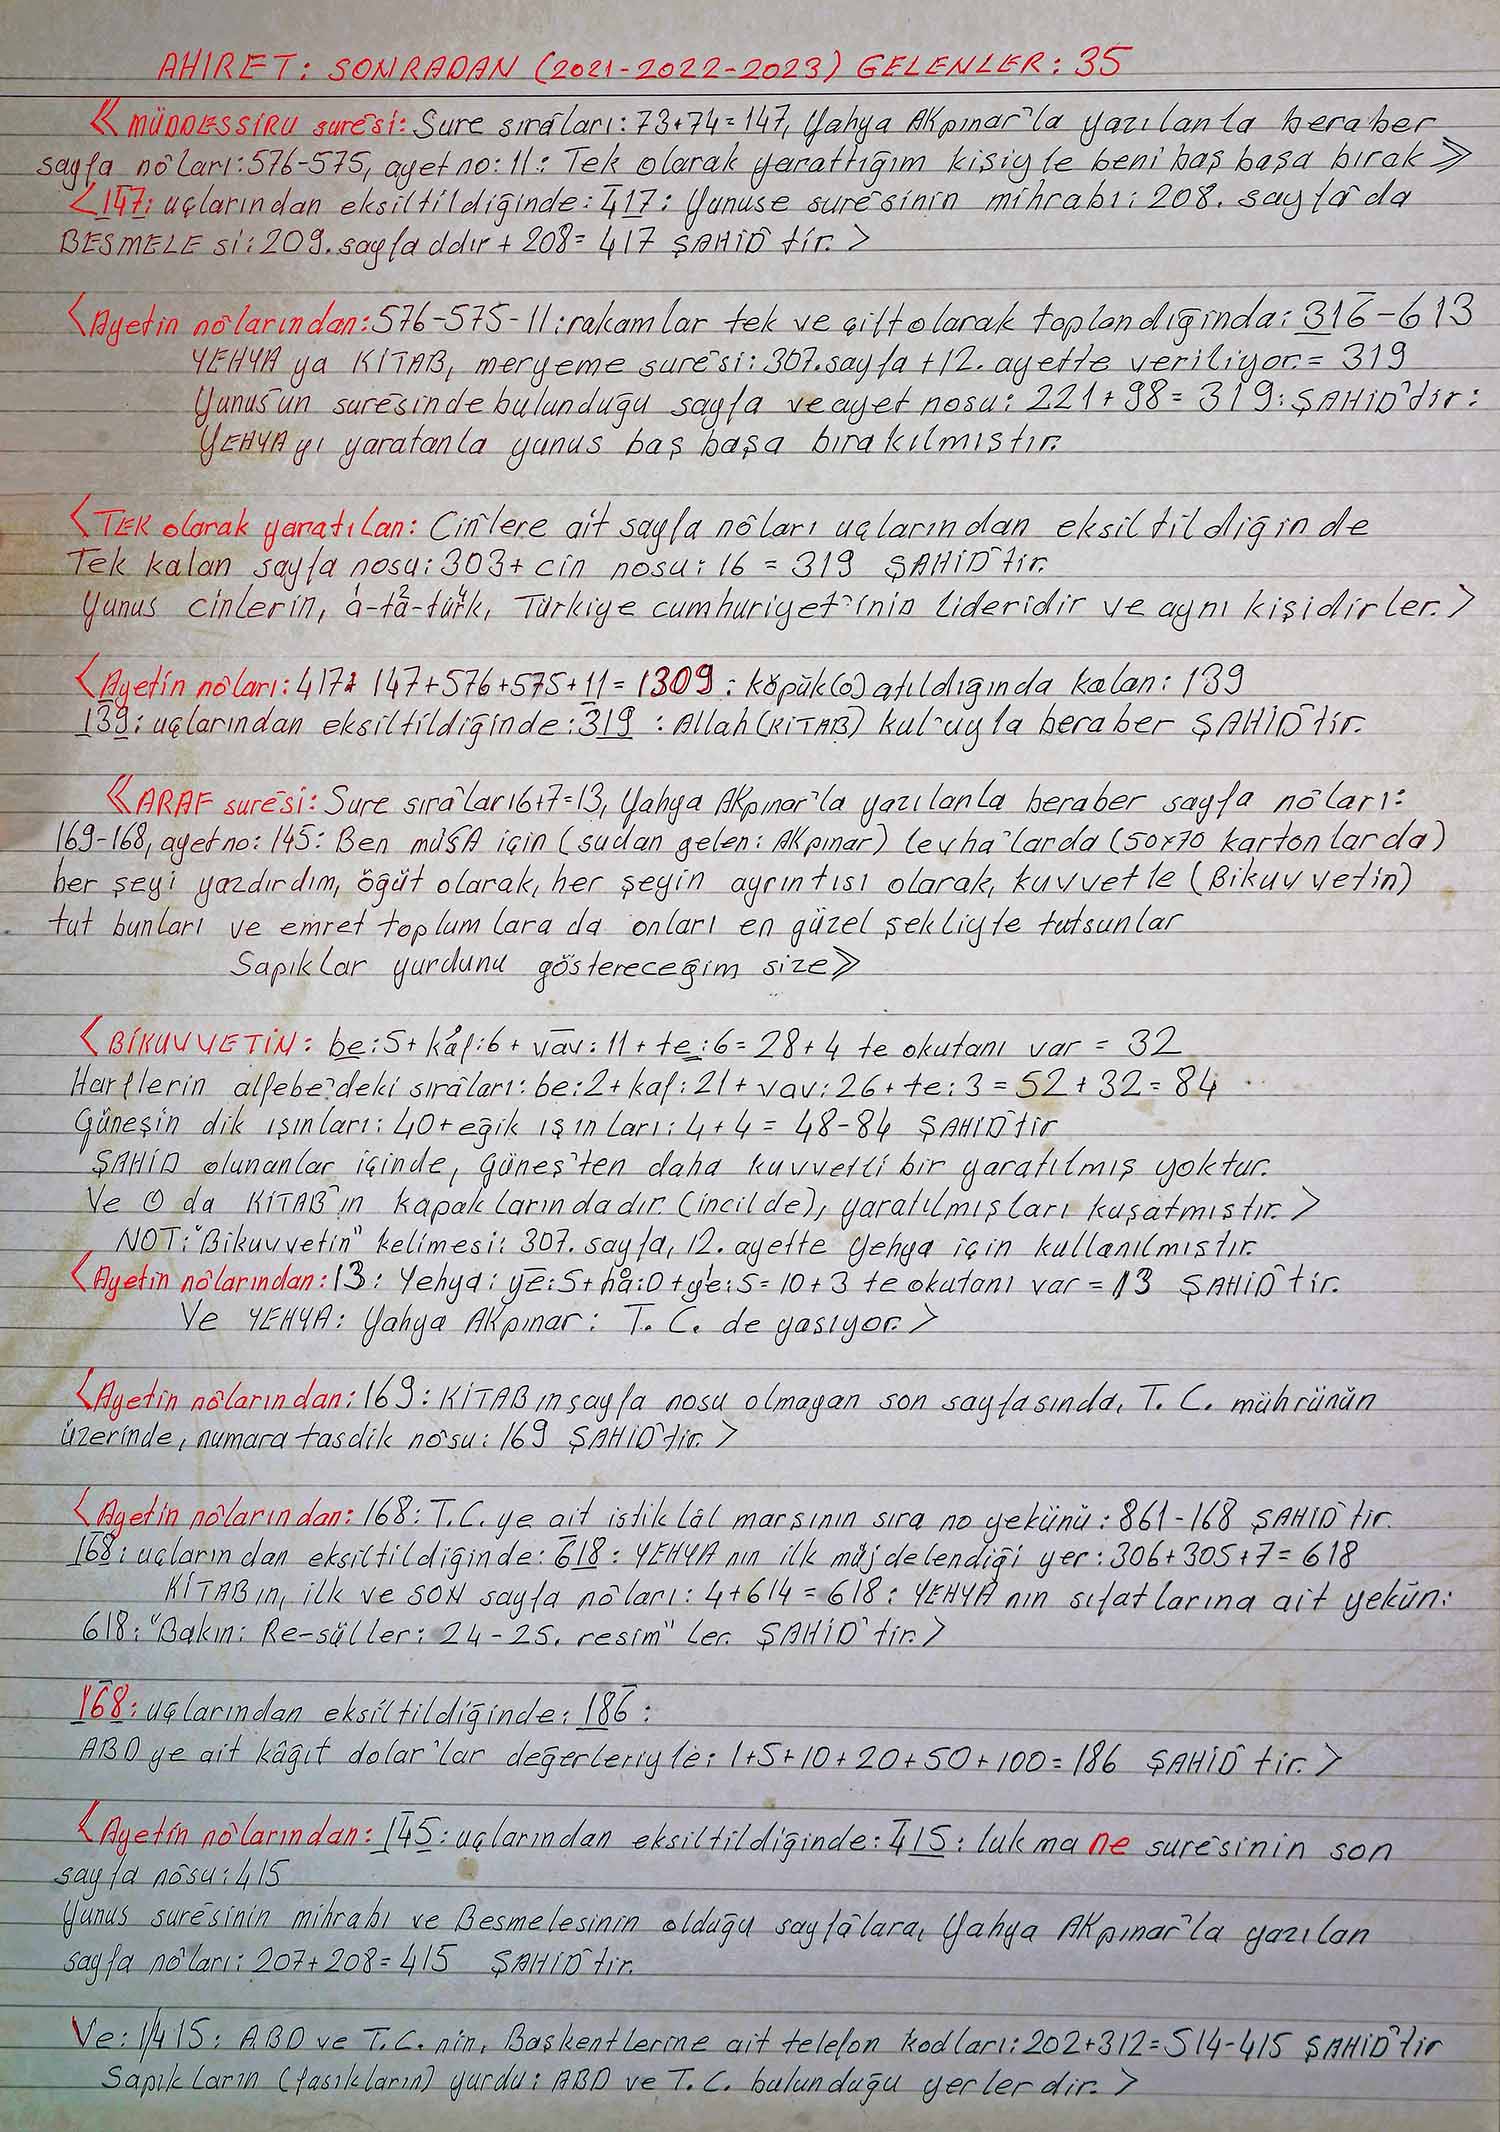 AHİRET: SONRADAN (2021-2022-2023) GELENLER: 35
《MÜDDESSİRU suresi: Sure sıraları: 73+74=147, Yahya AKpınar'la yazılanla beraber
sayfa noları: 576-575, ayet no: 11: Tek olarak yarattığım kişiyle beni baş başa bırak》
<147: uçlarından eksiltildiğinde: 417: Yunuse suresinin mihrabı: 208. sayfa da
BESMELE si: 209. sayfa ddır + 208= 417 ŞAHİD tir.>
<Ayetin nolarından: 576-575-11: rakamlar tek ve çift olarak toplandığında: 316-613
YEHYA ya KİTAB, meryeme suresi: 307. sayfa +12. ayette veriliyor.= 319
Yunus'un suresinde bulunduğu sayfa ve ayet nosu: 221+98=319: ŞAHİD'tir:
YEHYA yı yaratanla yunus baş başa bırakılmıştır.
<TEK olarak yaratılan: Cinlere ait sayfa noları uçlarından eksiltildiğinde
Tek kalan sayfa nosu: 303+ cin nosu: 16 = 319 ŞAHİD'tir.
Yunus cinlerin, a-ta-türk, Türkiye cumhuriyet'inin lideridir ve aynı kişidirler.>
<Ayetin noları: 417+ 147+576+575+11= 1309: köpük(o) atıldığında kalan: 139
139: uçlarından eksiltildiğinde: 319 : Allah (KİTAB) kul'uyla beraber ŞAHİD'tir.
《ARAF suresi: Sure sıraları 6+7=13, Yahya AKpınar'la yazılanla beraber sayfa noları:
169-168, ayet no: 145: Ben mûSA için (sudan gelen: AKpınar) levha'larda (50x70 kartonlarda)
her şeyi yazdırdım, öğüt olarak, her şeyin ayrıntısı olarak, kuvvetle (Bikuvvetin)
tut bunları ve emret toplumlara da onları en güzel şekliyle tutsunlar
Sapıklar yurdunu göstereceğim size》
<BİKUVVETİN: be:5+ kaf:6+ vav: 11+ te:6= 28+4 te okutanı var = 32
Harflerin alfebe'deki sıraları: be:2+ kaf: 21+ vav: 26+ te: 3= 52+32= 84
Güneşin dik ışınları: 40+eğik ışınları: 4+4= 48-84 ŞAHİD'tir
ŞAHİD olunanlar içinde, Güneş'ten daha kuvvetli bir yaratılmış yoktur.
Ve O da KİTAB'ın kapaklarındadır. (incilde), yaratılmışları kuşatmıştır.>
NOT: "Bikuvvetin" kelimesi: 307. sayfa, 12. ayette yehya için kullanılmıştır.
<Ayetin nolarından: 13: Yehya: ye:5+ha:0+ye:5=10+3 te okutanı var = 13 ŞAHİD'tir.
Ve YEHYA: Yahya AKpınar: T. C. de yaşıyor.>
<Ayetin nolarından: 169: KİTAB ın sayfa nosu olmayan son sayfasında, T. C. mührünün
üzerinde, numara tasdik nosu: 169 ŞAHİD'tir.>
<Ayetin nolarından: 168: T.C. ye ait istiklâl marşının sıra no yekünü: 861-168 ŞAHİD'tir.
168: uçlarından eksiltildiğinde: 618: YEHYA nın ilk müjdelendiği yer: 306+305+7=618
KİTAB ın, ilk ve SON sayfa noları: 4+614 = 618: YEHYA nın sıfatlarına ait yekün:
618: "Bakın: Re-sûller: 24-25. resim" ler. ŞAHİD'tir.>
168: uçlarından eksiltildiğinde: 186:
ABD ye ait kâğıt dolar'lar değerleriyle: 1+5+10+20+50+100=186 ŞAHİD'tir.>
<Ayetin nolarından: 145: uçlarından eksiltildiğinde: 415: lukmane suresinin son
sayfa nosu: 415
Yunus suresinin mihrabı ve Besmelesinin olduğu sayfalara, Yahya AKpınar'la yazılan
sayfa noları: 207+208=415 ŞAHİD'tir.
Ve: 1/415: ABD ve T.C. nin, Başkentlerine ait telefon kodları: 202+312=514-415 ŞAHİD'tir
Sapıkların (fasıkların) yurdu: ABD ve T.C. bulunduğu yerlerdir.>